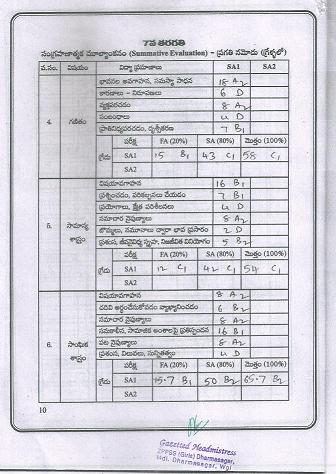 7వ తరగతి
సంగ్రహణాత్మక మూల్యాంకనం (Summative Evaluation) - ప్రగతి నమోదు (గ్రేళ్ళలో)
వ.సం. విషయం విద్యా ప్రమాణాలు SA1 SA2
భావనల అవగాహన, సమస్యా సాధన 18 A2
కారణాలు - నిరూపణలు 6 D
వ్యక్తపరచడం 8 A2
4. గణితం సంబంధాలు 4 D
ప్రాతినిధ్యపరచడం, దృశ్యీకరణ 7 B1
గ్రేడు పరీక్ష FA (20%) SA (80%) మొత్తం (100%)
SA1 15 B1 43 C1 58 C1
SA2
విషయావగాహన 16 B1
ప్రశ్నించడం, పరికల్పనలు చేయడం 7 B1
ప్రయోగాలు, క్షేత్ర పరిశీలనలు 4 D
5. సామాన్య శాస్త్రం సమాచార నైపుణ్యాలు 8 A2
బొమ్మలు, నమూనాల ద్వారా భావ ప్రసారం 2 D
ప్రశంస, జీవవైవిధ్య స్పృహ, నిజజీవిత వినియోగం 5 B2
గ్రేడు పరీక్ష FA (20%) SA (80%) మొత్తం (100%)
SA1 12 C1 42 C1 54 C1
SA2
విషయావగాహన 8 A2
చదివి అర్థంచేసుకోవడం వ్యాఖ్యానించడం 6 B2
సమాచార నైపుణ్యాలు 8 A2
సమకాలీన, సామాజిక అంశాలపై ప్రతిస్పందన 16 B1
6. సాంఘిక శాస్త్రం పట నైపుణ్యాలు 8 A2
ప్రశంస, విలువలు, సున్నితత్వం 4 D
గ్రేడు పరీక్ష FA (20%) SA (80%) మొత్తం (100%)
SA1 15.7 B1 50 B2 65.7 B2
SA2
10
Gazetted Headmistress
ZPPSS (Girls) Dharmasagar,
Mdl. Dharmasagar, Wgl